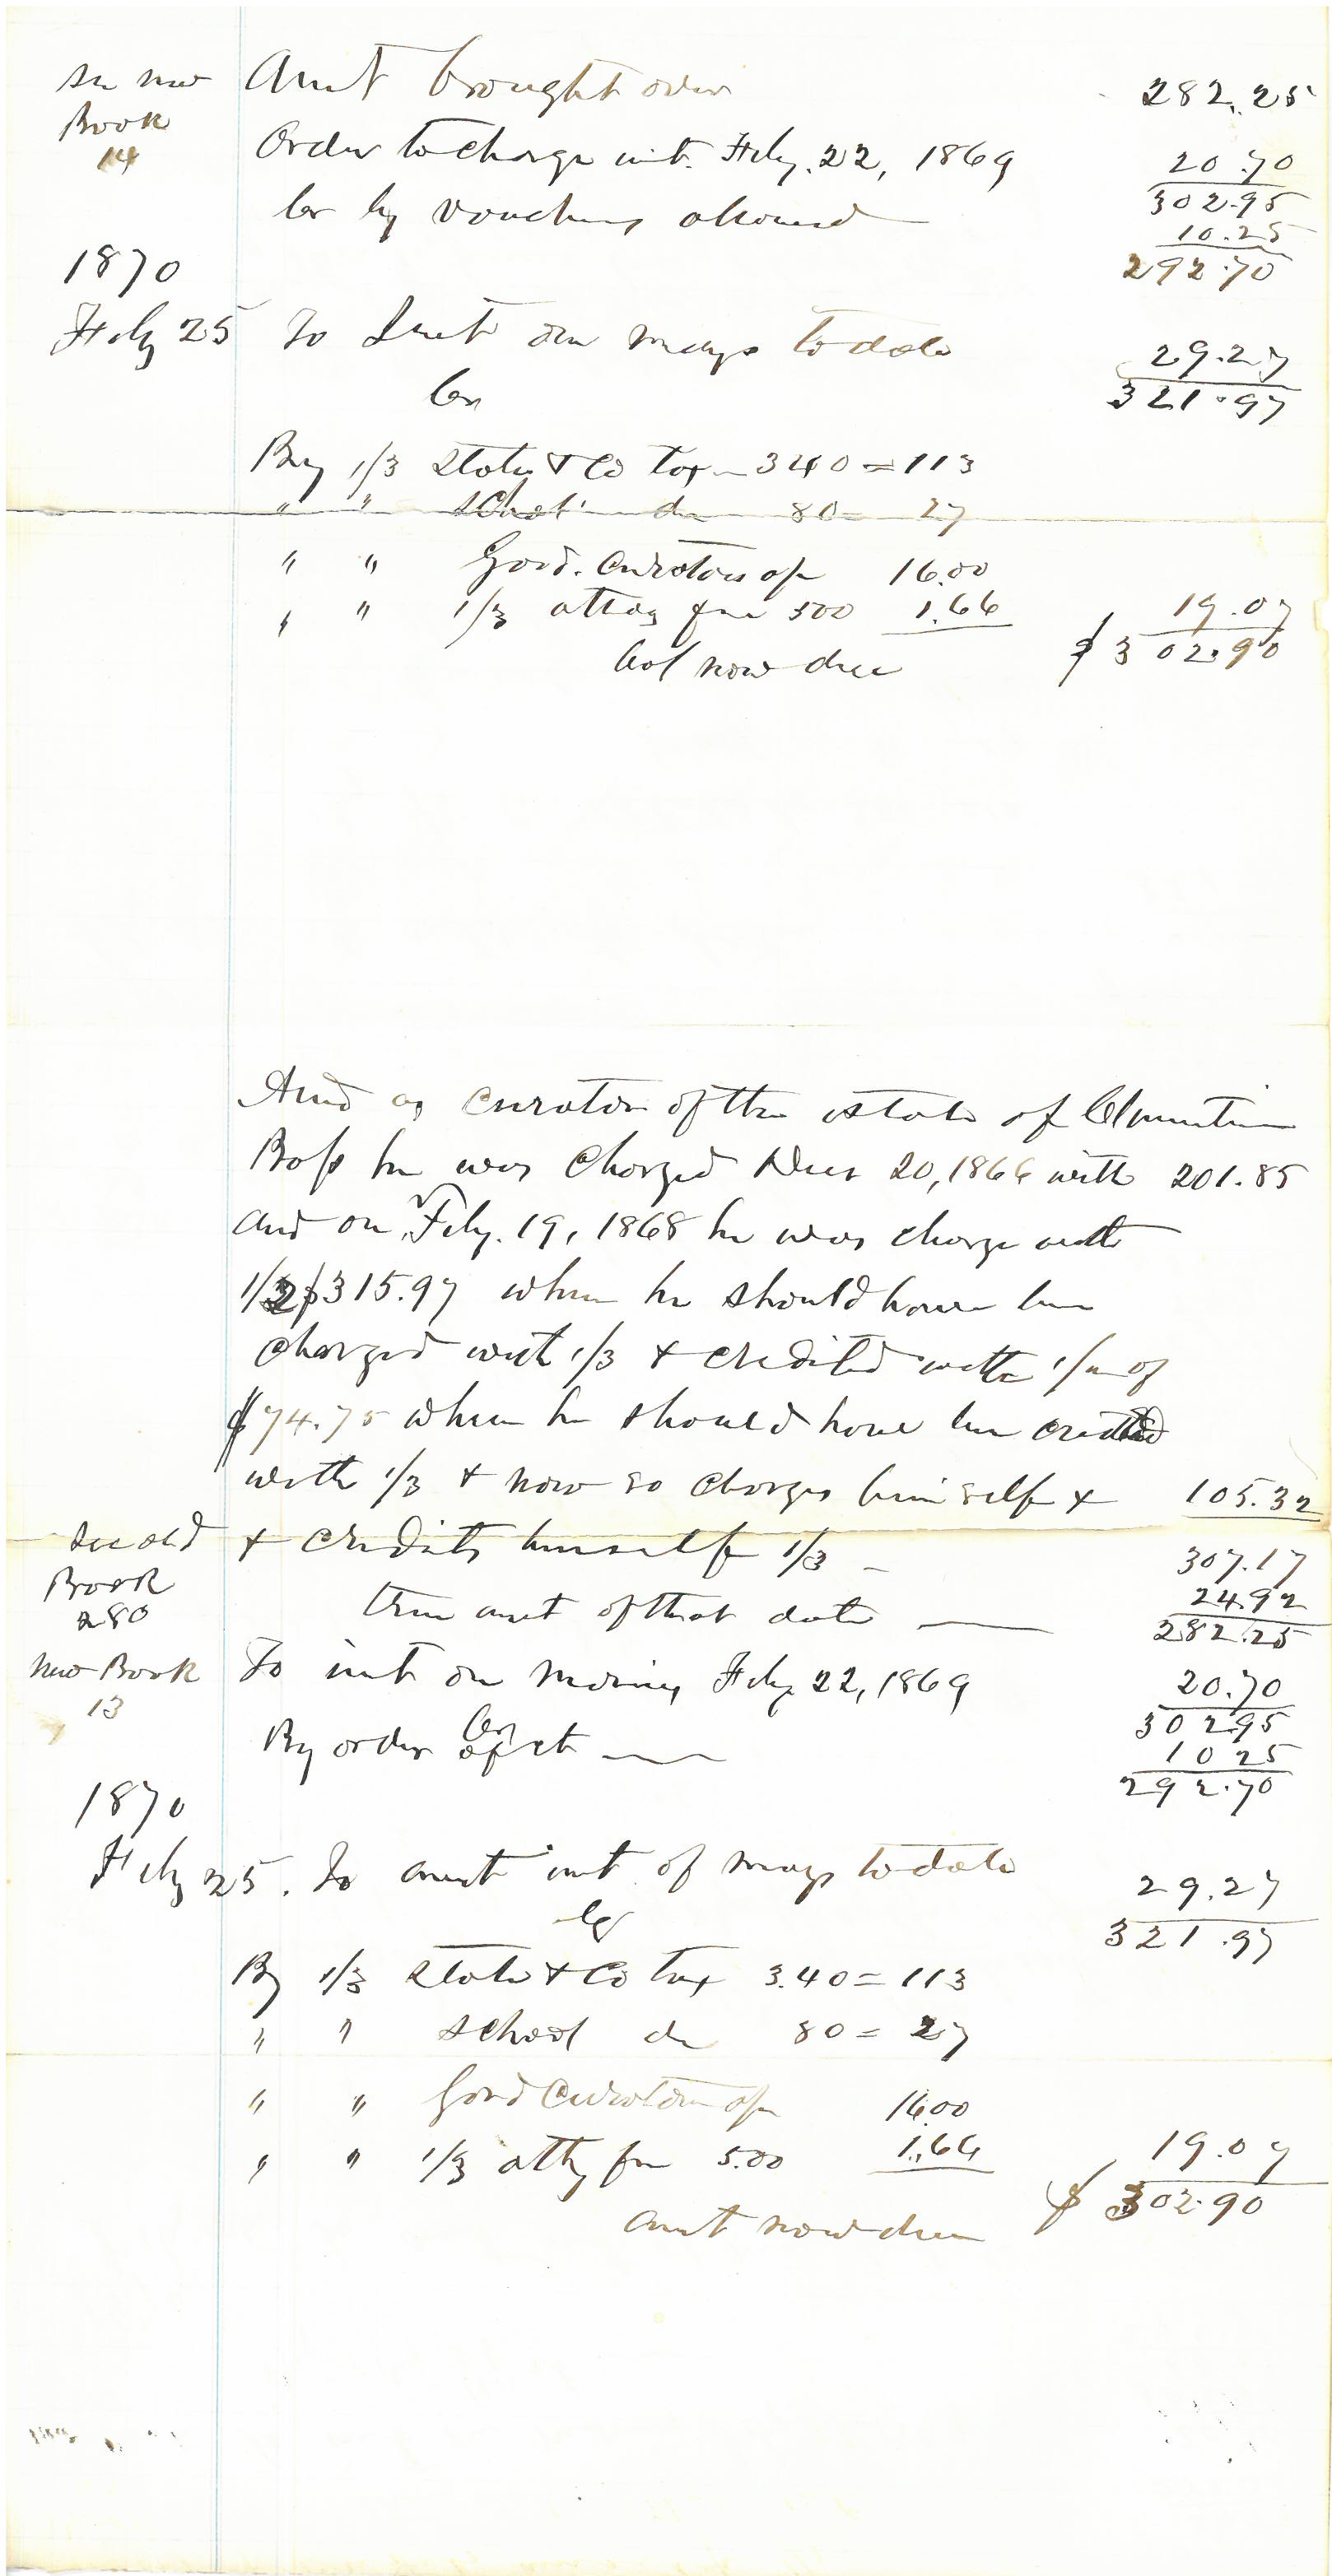 See new Amt brought over 282.25
Book
14
Order to charge int. Feby. 22, 1869 20.70
302.95
Cr by vouchers allowed 10.25
292.70
1870
Feby 25 To Int on mays to date 29.27
Cr 321.97
By 1/3 State & Co Tax 340 = 113
" " School do 80 = 27
" " Gord. Curators ap 16.00
" " 1/3 attoy fee 500 1.66 19.07
bal now due $302.90
And as curator of the estate of
Boss he was charged Decr 20, 1866 with 201.85
and on Feby. 19, 1868 he was charge with
1/2 $315.97 when he should have been
charged with 1/3 & credited with 1/2 of
$74.75 when he should have been credited
with 1/3 & now so charges himself & 105.32
See old & credits himself 1/3 – 307.17
Book 24.92
280 true amt of that date 282.25
New Book To int on money Feby 22, 1869 20.70
13 302.95
By order Cr of ct 10 25
292.70
1870
Feby 25. To amt int of mays to date 29.27
Cr 321.97
By 1/3 State & Co Tax 3.40 = 113
" " School do 80 = 27
" " Gord Curators ap 16.00
" " 1/3 atty fee 5.00 1.66 19.07
amt now due $302.90